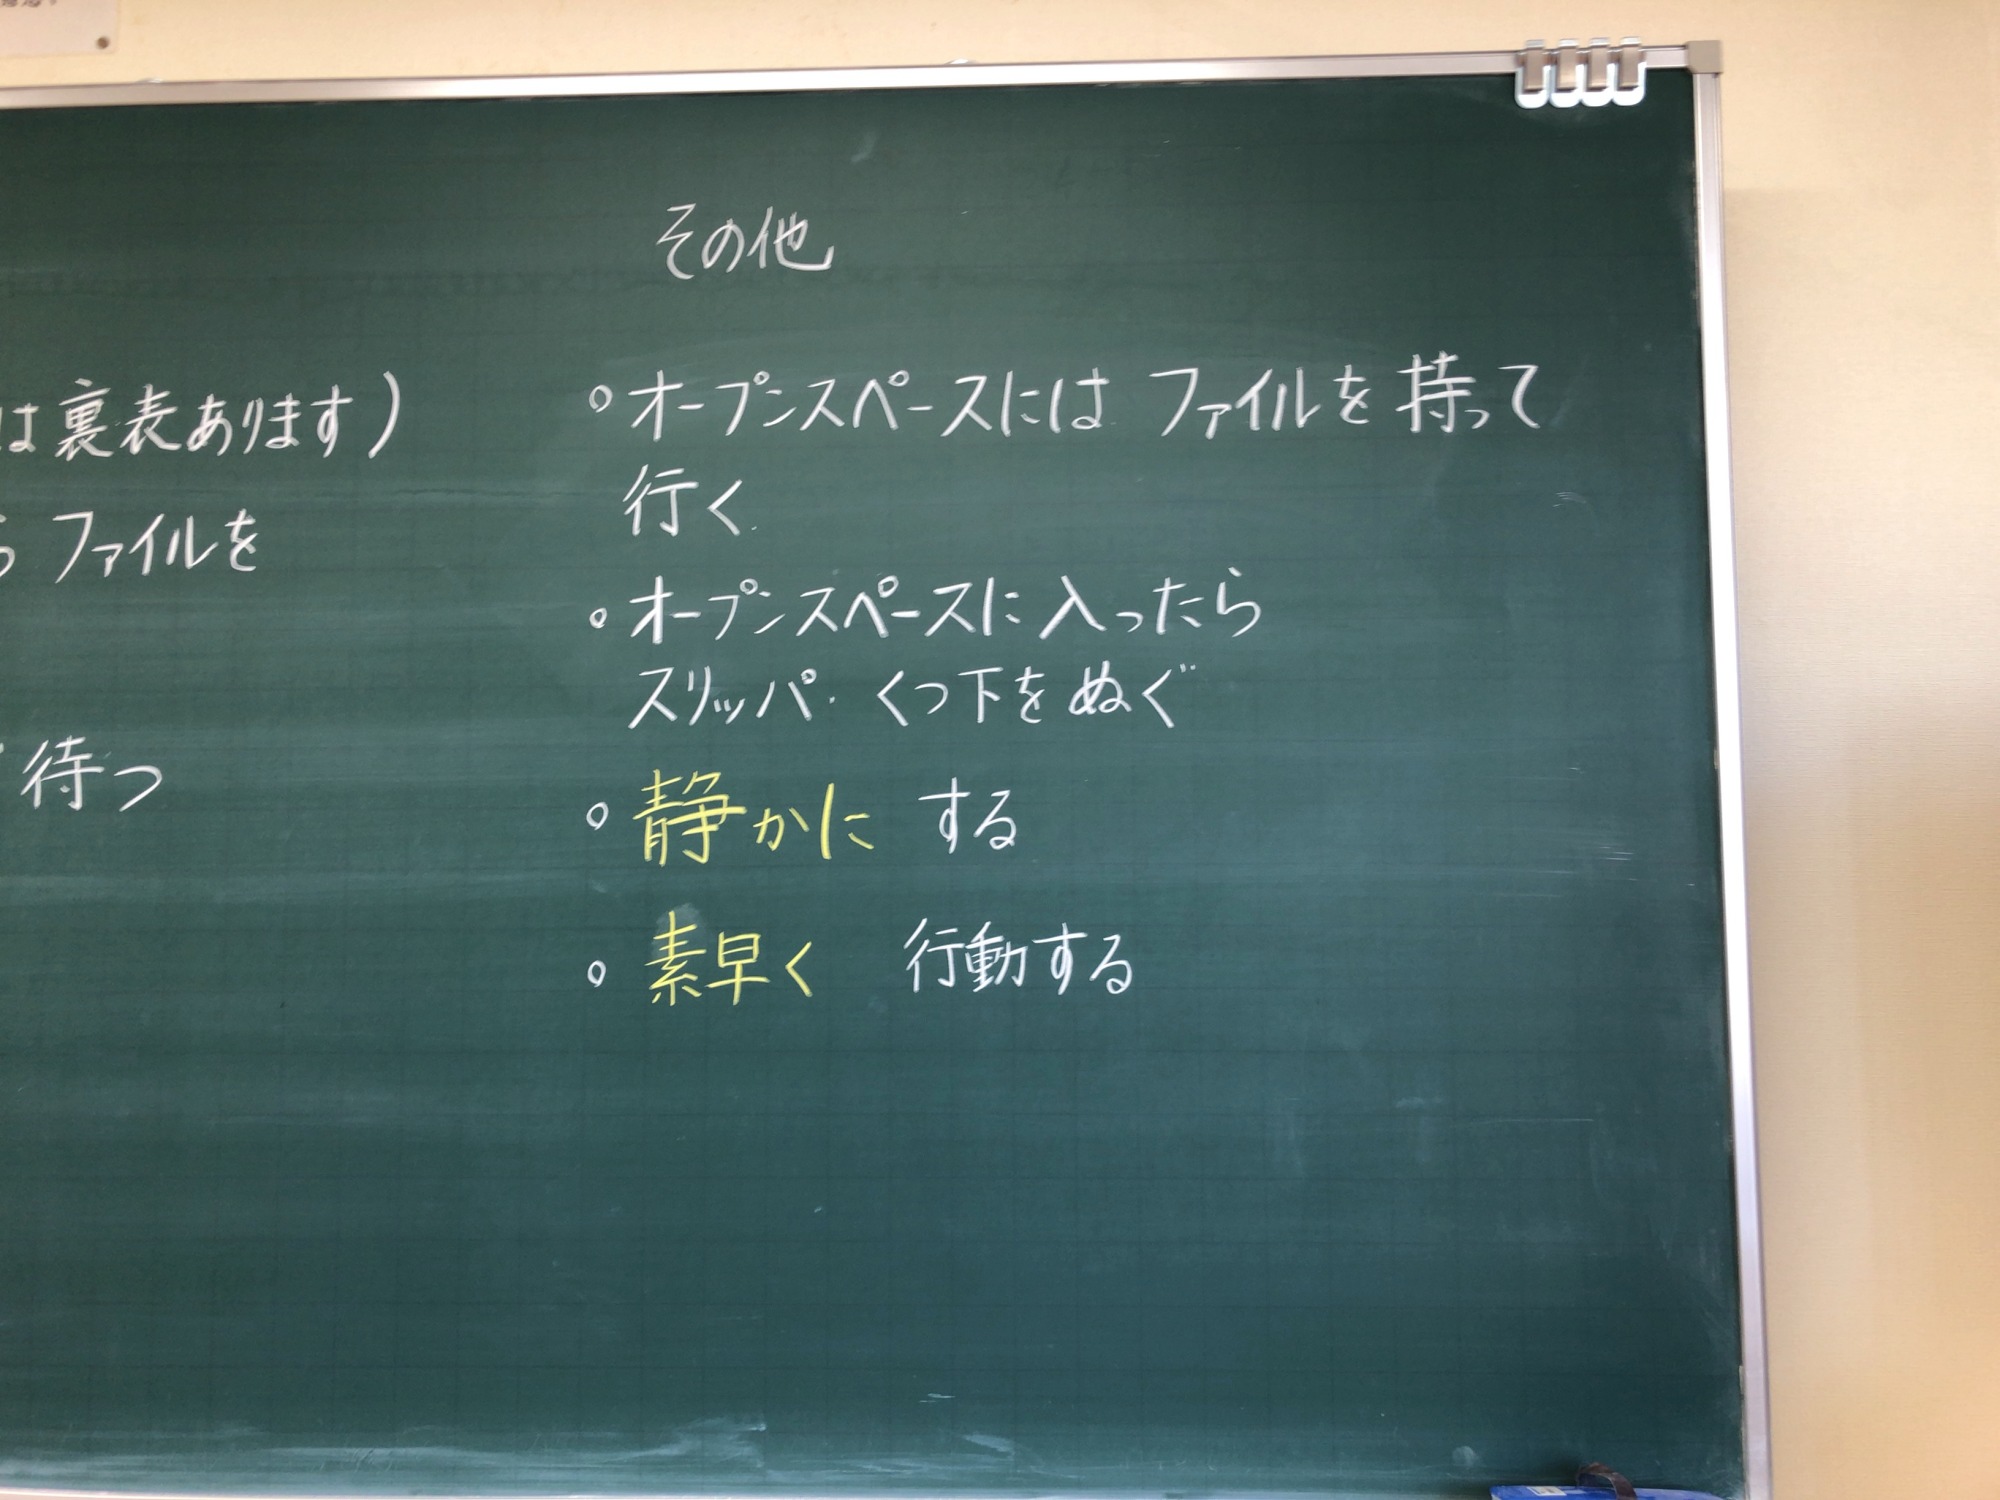 その他
は裏表あります)
ファイルを
待つ
○オープンスペースにはファイルを持って
行く
○オープンスペースに入ったら
スリッパ・くつ下をぬぐ
○静かに する
○素早く 行動する